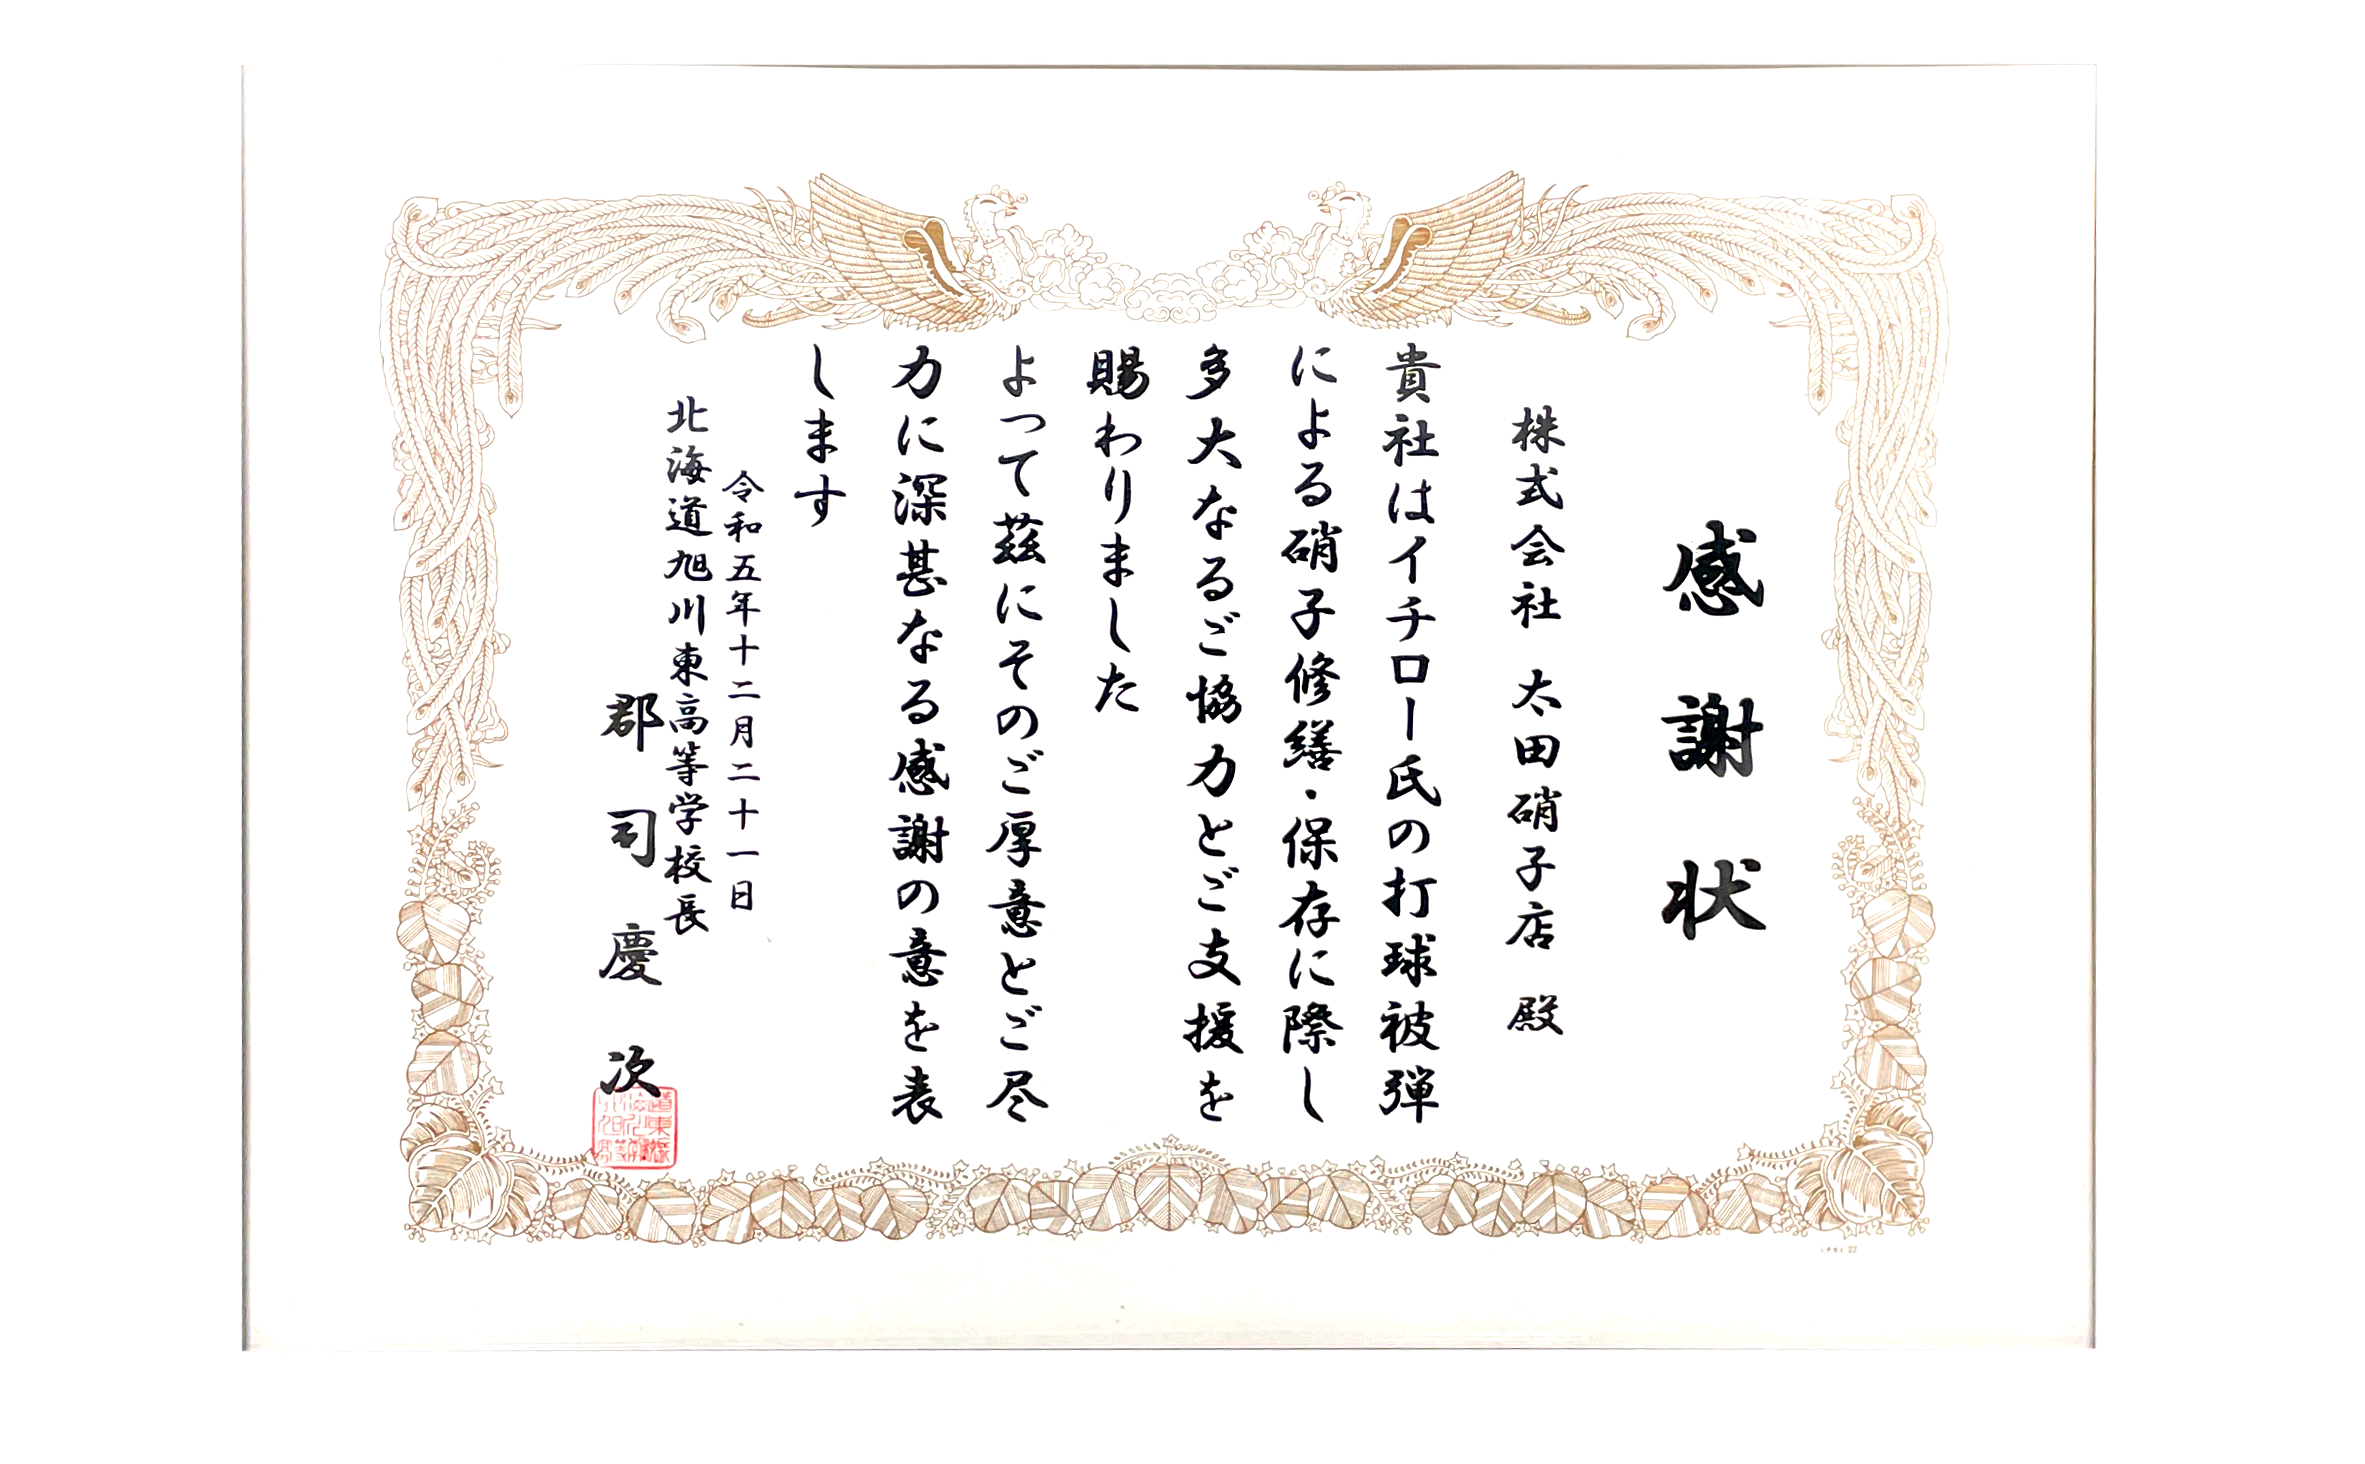 感謝状
株式会社 太田硝子店 殿
貴社はイチロー氏の打球被弾
による硝子修繕・保存に際し
多大なるご協力とご支援を
賜わりました
よって茲にそのご厚意とご尽
力に深甚なる感謝の意を表
します
令和五年十二月二十一日
北海道旭川東高等学校長
郡司慶次